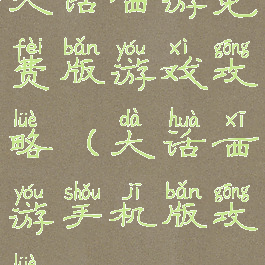 大话西游免
fèi bǎn yóu xì gōng
费版游戏攻
lüè dà huà xī
略（大话西
yóu shǒu jī bǎn gōng
游手机版攻
lüè